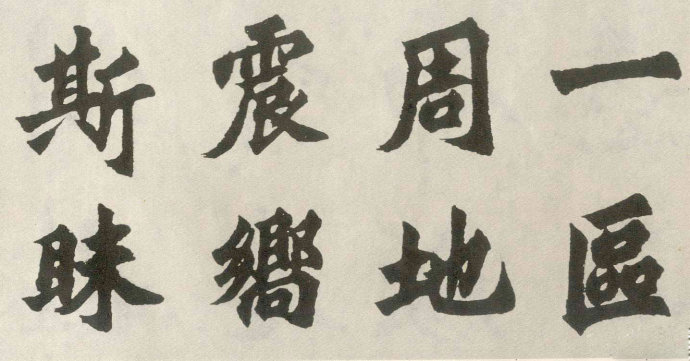 一區
周地
震嚮
斯昧